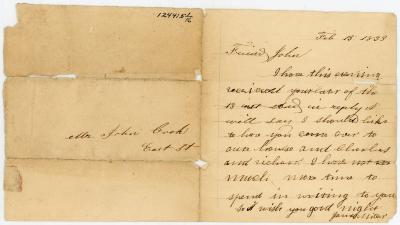 124415 1/16
Mr John Cook
East St
Feb 18
Friend John
I have this evening
received your letter of the
13 inst and in reply I
will say I should like
to have you come over to
our house and Charles
and I have not
much more time to
spend in writing to you
so I wish you good night
James